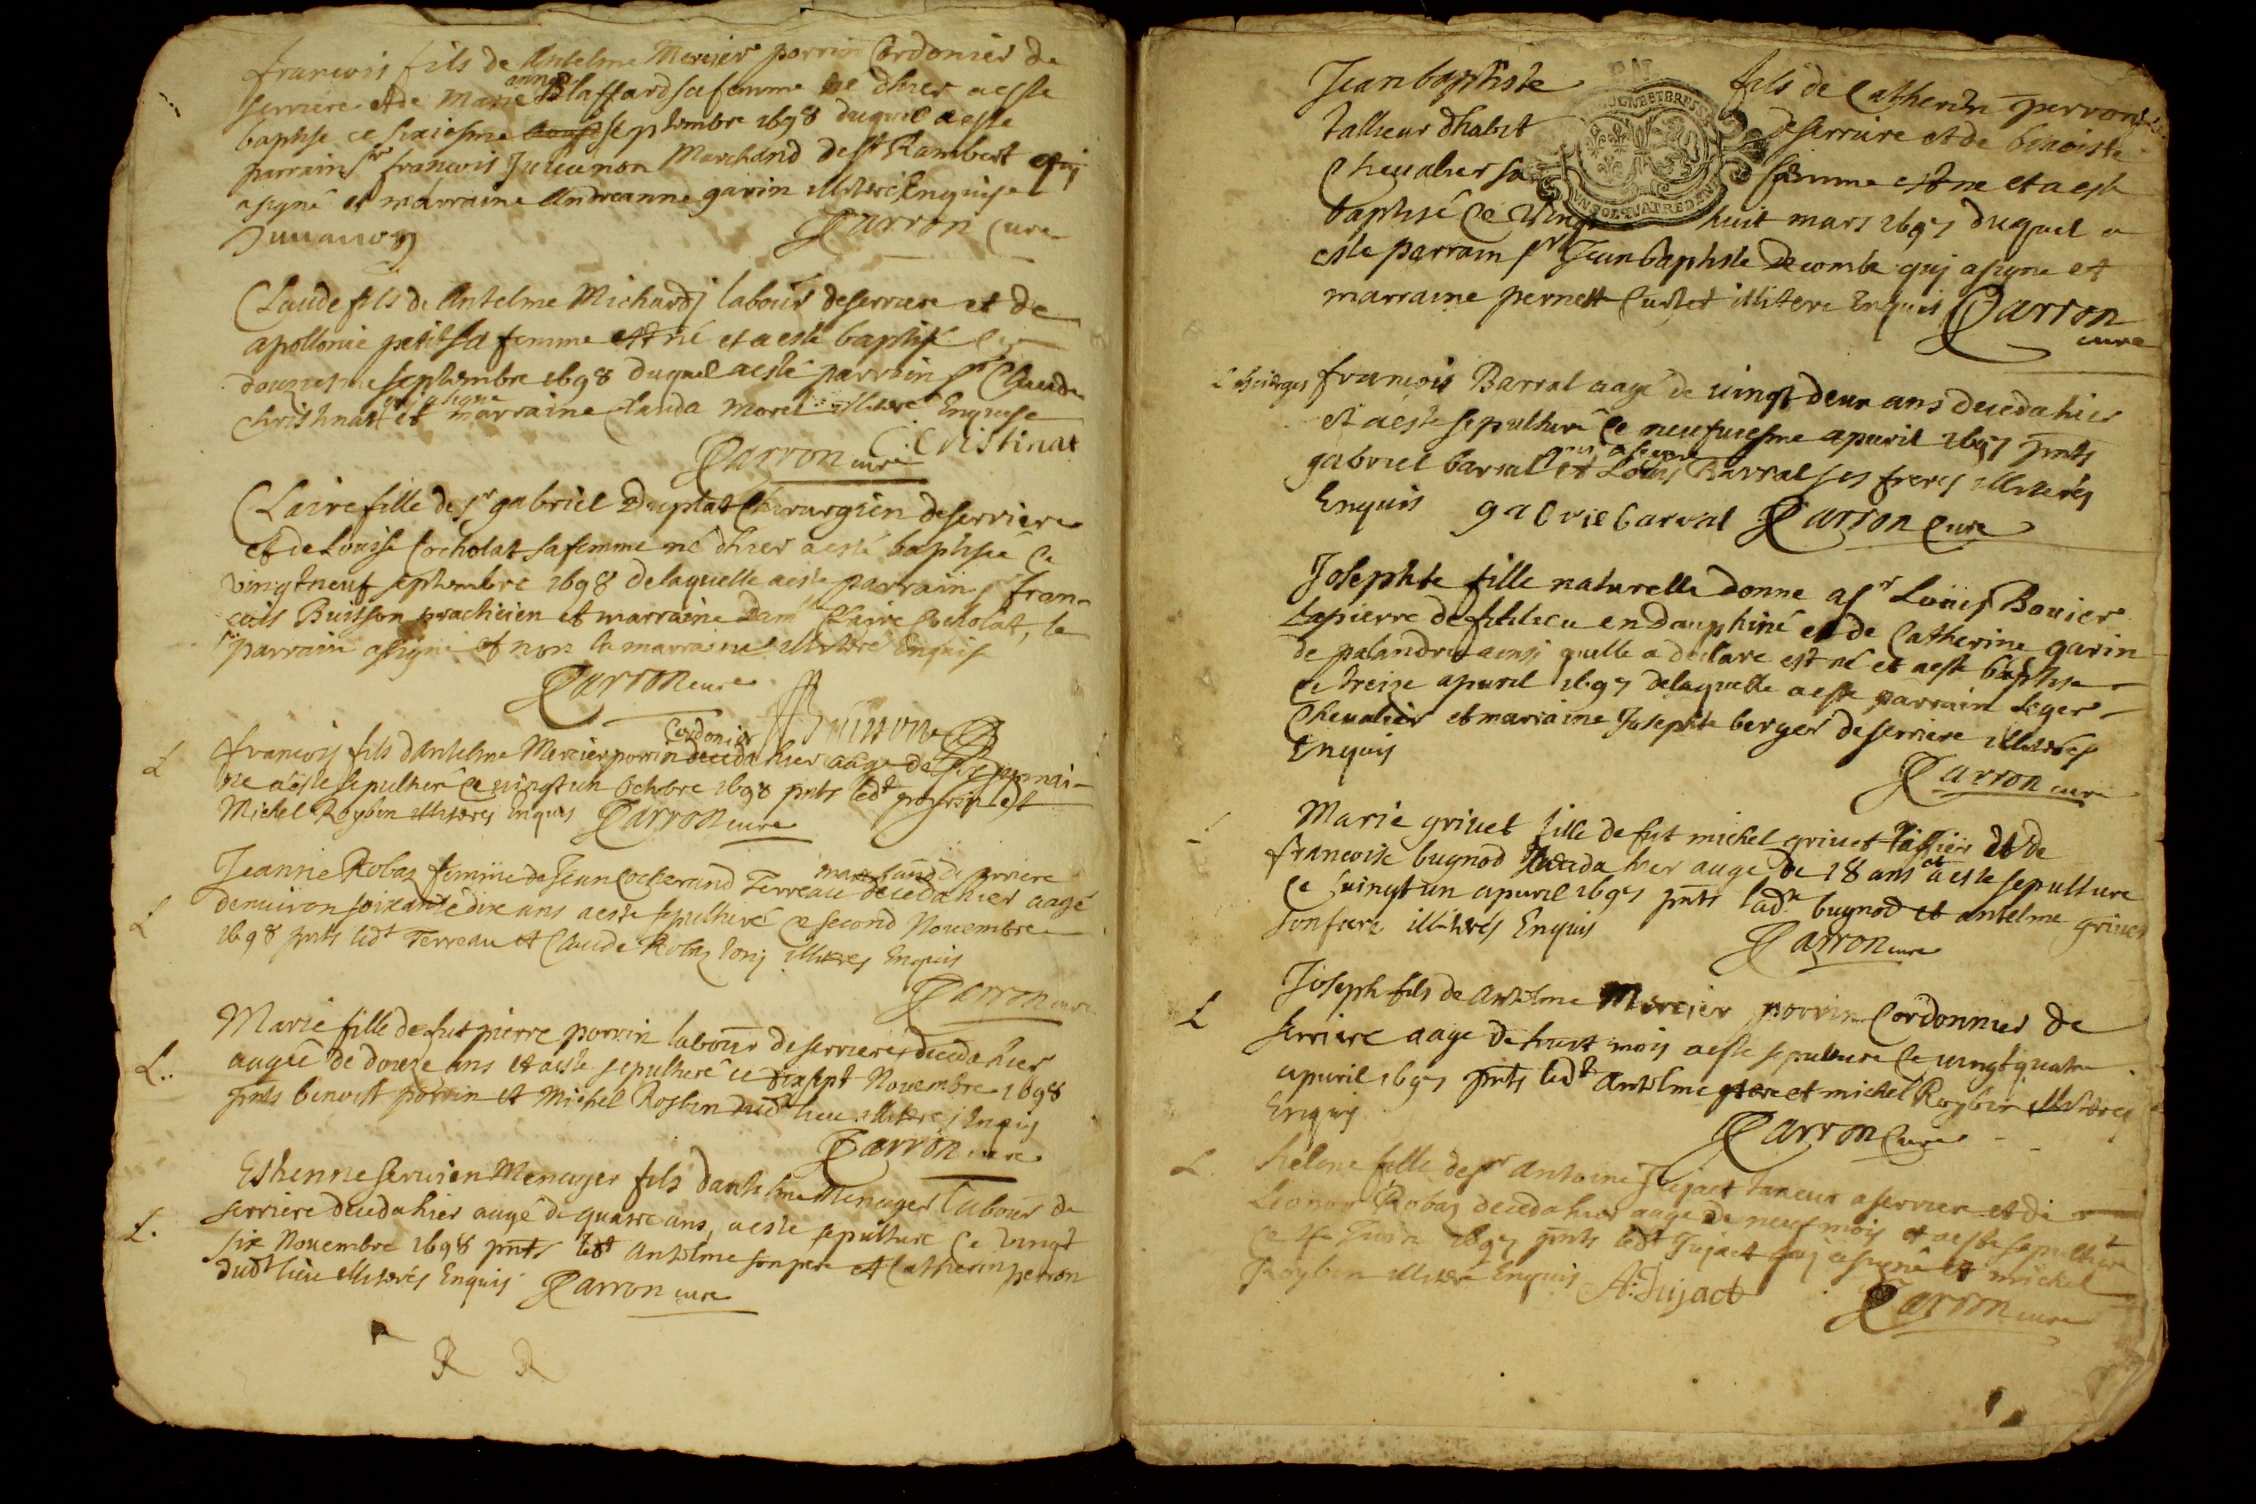 francois fils de Antelme Mercier porrin Cordonier de
serriere et de Marie anne Blaffard sa femme né dhier aeste
baptise ce sixiesme septembre 1698 duquel a este
parrain sr francois Juuanon Marchand de st Rambert et qui
a signé et marraine Andreanne garin illiteré Enquise
Juuanon Carron cure
Claude fils de Antelme Michard labour de serriere et de
apollonie petit sa femme est né et a esté baptisé ce
douziesme septembre 1698 duquel a esté parrain sr Claude
Christinat qui a signe et marraine Clauda Morel illiteré Enquise
Carron cure C: Cristinat
Claire fille de sr gabriel Duplat Chirurgien de serriere
et de Louise Cocholat sa femme né dhier a esté baptisée ce
vingt neuf septembre 1698 de laquelle a este parrain sr fran-
cois Buisson practicien et marraine Dam Claire Cocholat, le
parrain a signé et non la marraine illiteré Enquise
Carron cure
Buisson
francois fils dAntelme Mercier porrin Cordonier deceda hier aage de
ne a este sepulturé ce vingt un Octobre 1698 pnts ledt porrin et
Michel Roybin illiterés Enquis Carron cure
Jeanne Robaz femme de Jean Cocherand Terreau marchand de serriere deceda hier aagé
denuiron soixante dix ans a este sepulturé ce second Nouembre
1698 pnts ledt Terreau et Claude Robaz illiteres Enquis
Carron cure
Marie fille de fut pierre porrin labour de serriere deceda hier
augée de douze ans et a este sepulturé ce dixsept Nouembre 1698
pnts benoist porrin et Michel Roybin dudt lieu illiteres Enquis
Carron cure
Estienne seruien Menager fils dantelme Menager labour de
serriere deceda hier augé de quatre ans, a este sepulturé ce vingt
six Nouembre 1698 pnts ledt Antelme son pere et Catherin perron
dudt lieu illiterés Enquis Carron cure
Jean baptiste fils de Catherin perron
tallieur dhabit de serriere et de benoiste
Cheualier sa femme est né et a este
baptisé ce vingt huit mars 1697 duquel a
este parrain sr Jean baptiste Decombe qui a signe et
marraine pernette Curtet illitere Enquis Carron
cure
francois Barral aagé de vingt deux ans deceda hier
et a este sepulturé ce neufuiesme apuril 1697 pnts
gabriel barral qui a signe et Louis Barral ses freres illiterés
Enquis gabriel barral Carron Cure
Josephte fille naturelle donne a sr Louis Bouier
Lapierre de en Dauphiné et de Catherine garin
de palandru ainsi quelle a declaré est né et a este baptise
ce treize apuril 1697 de laquelle a este parrain Leger
Cheualier et marraine Josephte berger de serriere illiterés
Enquis
Carron cure
Marie griuet fille de fut michel griuet et de
francoise bugnod deceda hier auge de 18 ans et a este sepulture
ce vingt un apuril 1697 pnts ladte bugnod et antelme griuet
son frere illiterés Enquis
Carron cure
Joseph fils de Antelme Mercier porrin Cordonnier de
serriere aage de huit mois a este sepulture ce vingt quatre
apuril 1697 pnts ledt Antelme et michel Roybin illiterés
Enquis
Carron Cure
helene fille de sr Antoine Jujact taneur a serriere et de
Leonor Robaz deceda hier aage de neuf mois et a este sepulture
ce Juin 1697 pnts ledt Jujact qui a signé et michel
Roybin illiteré Enquis A: Jujact
Carron cure